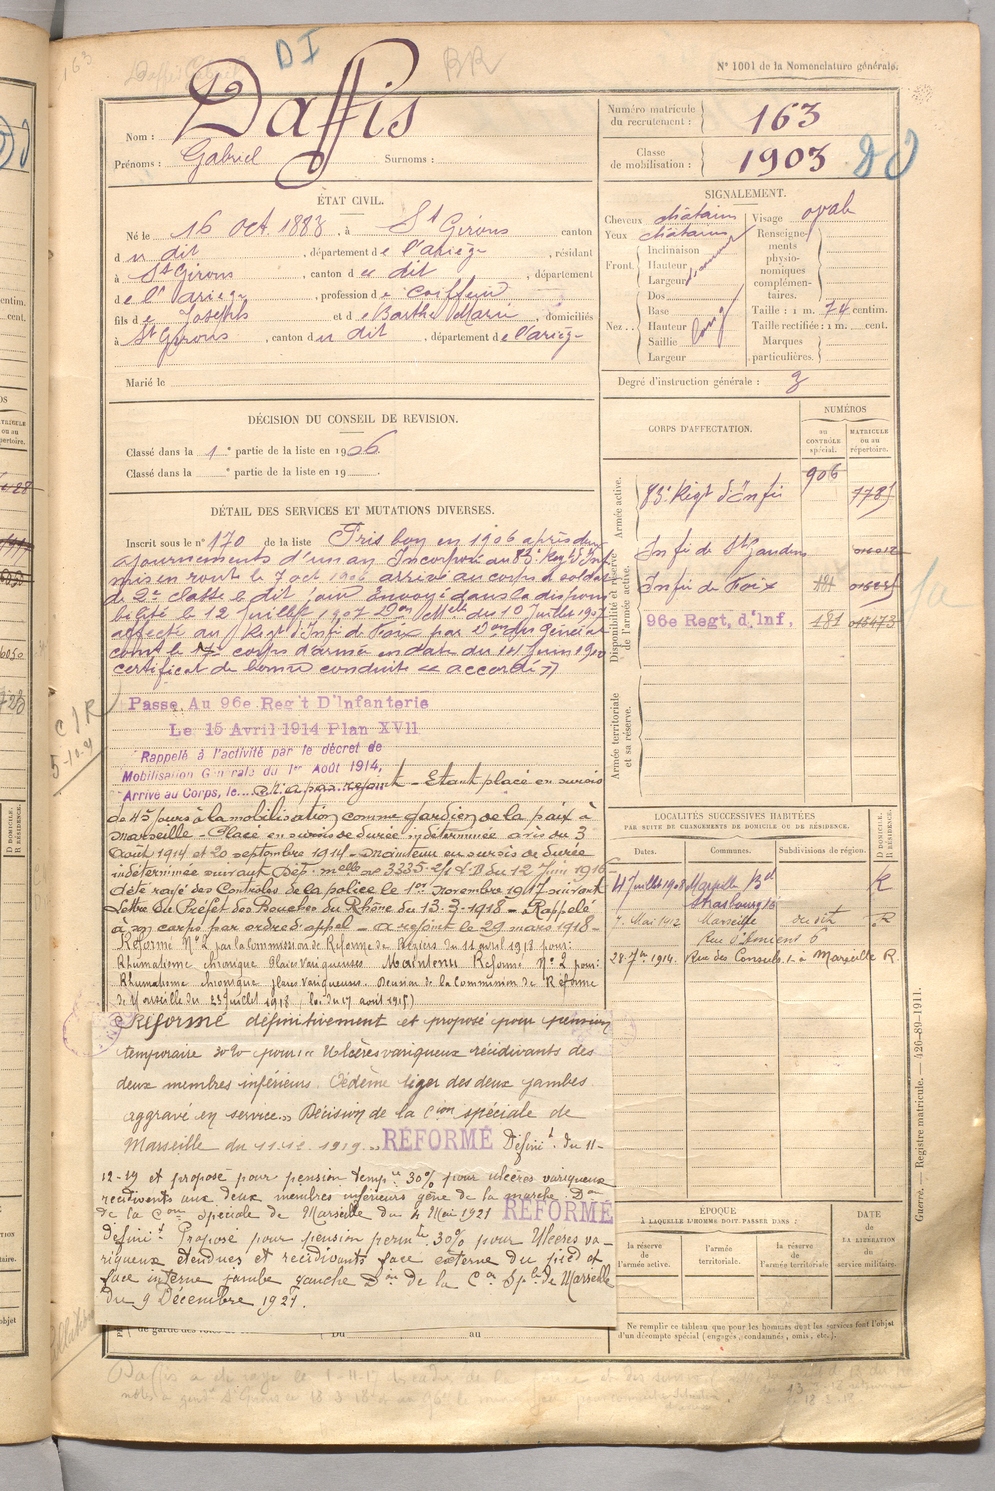 N° 1001 de la Nomenclature générale.
163
DI
BR
Nom : Daffis
Prénoms : Gabriel Surnoms :
Numéro matricule du recrutement : 163
Classe de mobilisation : 1903
ÉTAT CIVIL.
Né le 16 oct. 1883, à St Girons canton
du dit, département de l'ariège, résidant
à St Girons, canton du dit, département
de l'Ariège, profession de coiffeur
fils de Joseph et de Barthe Marie, domiciliés
à St Girons, canton du dit, département de l'ariège
Marié le
SIGNALEMENT.
Cheveux châtains Visage ovale
Yeux châtains
Front. Inclinaison
Hauteur
Largeur
Nez.. Dos
Base
Hauteur
Saillie
Largeur
long
Renseignements physionomiques complémentaires.
Taille : 1 m. 74 centim.
Taille rectifiée : 1 m. cent.
Marques particulières.
Degré d'instruction générale : 3
DÉCISION DU CONSEIL DE REVISION.
Classé dans la 1e partie de la liste en 1906
Classé dans la e partie de la liste en 19 .
CORPS D'AFFECTATION.
NUMÉROS
au CONTRÔLE spécial.
MATRICULE ou au répertoire.
Armée active.
906
83e Régt d'Infie
Disponibilité et réserve de l'armée active.
Infie de St Gaudens
Infie de Foix
96e Regt, d'Inf, 181
Armée territoriale et sa réserve.
DÉTAIL DES SERVICES ET MUTATIONS DIVERSES.
Inscrit sous le n° 170 de la liste Pris bon en 1906 après deux
ajournements d'un an Incorporé au 83e Régt d'Inf
mis en route le 7 oct 1906 arrivé au corps et soldat
de 2e classe le dit jour Envoyé dans la disponi
bilité le 12 Juillet 1907 Don Melle du 10 Juillet 1907
affecté au Régt d'Inf de Foix par Don du Général
comt le 17e corps d'armée en date du 14 Juin 190
certificat de bonne conduite "accordé"
Passé Au 96e Reg't D'Infanterie
Le 15 Avril 1914 Plan XVII
Rappelé à l'activité par le décret de
Mobilisation Générale du 1er Août 1914,
Arrivé au Corps, le... n'a pas rejoint - Etant placé en sursis
de 45 jours à la mobilisation comme gardien de la paix à
Marseille - Placé en sursis de durée indéterminée à/s du 3
Août 1914 et 20 septembre 1914 - Maintenu en sursis de durée
indéterminée suivant Dép. melle n° 3335 du 12 Juin 1916
a été rayé des Controles de la police le 1er novembre 1917 suivant
lettre du Préfet des Bouches du Rhône du 13-3-1918 - Rappelé
à son corps par ordre d'appel - a rejoint le 29 mars 1918 -
Réformé N° 2 par la Commission de Réforme de Béziers du 11 avril 1918 pour :
Rhumatisme chronique plaies variqueuses Maintenu Réformé N° 2 pour :
Rhumatisme chronique plaies variqueuses. Décision de la Commission de Réforme
de Marseille du 23 Juillet 1918 (loi du 17 août 1915)
Réformé définitivement et proposé pour pension
temporaire 30% pour "Ulcères variqueux récidivants des
deux membres inférieurs. Oedème léger des deux jambes
aggravé en service" Décision de la Cion spéciale de
Marseille du 11.12.1919. RÉFORMÉ Définit. du 11-
12-19 et proposé pour pension tempre 30% pour ulcères variqueux
récidivants aux deux membres inférieurs gêne de la marche. Don
de la Con spéciale de Marseille du 4 Mai 1921 RÉFORMÉ
Définit Proposé pour pension permte 30% pour Ulcères va-
riqueux étendus et récidivants face externe du pied et
face interne jambe gauche Don de la Con Sple de Marseille
du 9 Décembre 1921.
LOCALITÉS SUCCESSIVES HABITÉES
PAR SUITE DE CHANGEMENTS DE DOMICILE OU DE RÉSIDENCE.
Dates. Communes. Subdivisions de région. D DOMICILE. R RÉSIDENCE.
4 Juillet 1908 Marseille Bd Strasbourg R
7 Mai 1912 Marseille du dit R
Rue d'Amiens 6
28 7bre 1914. Rue des Consuls à Marseille R.
ÉPOQUE
À LAQUELLE L'HOMME DOIT PASSER DANS :
la réserve de l'armée active.
l'armée territoriale.
la réserve de l'armée territoriale
DATE de LA LIBÉRATION du service militaire.
Ne remplir ce tableau que pour les hommes dont les services font l'objet
d'un décompte spécial (engagés, condamnés, omis, etc.).
Guerre. — Registre matricule. — 426-89-1911.
Du au